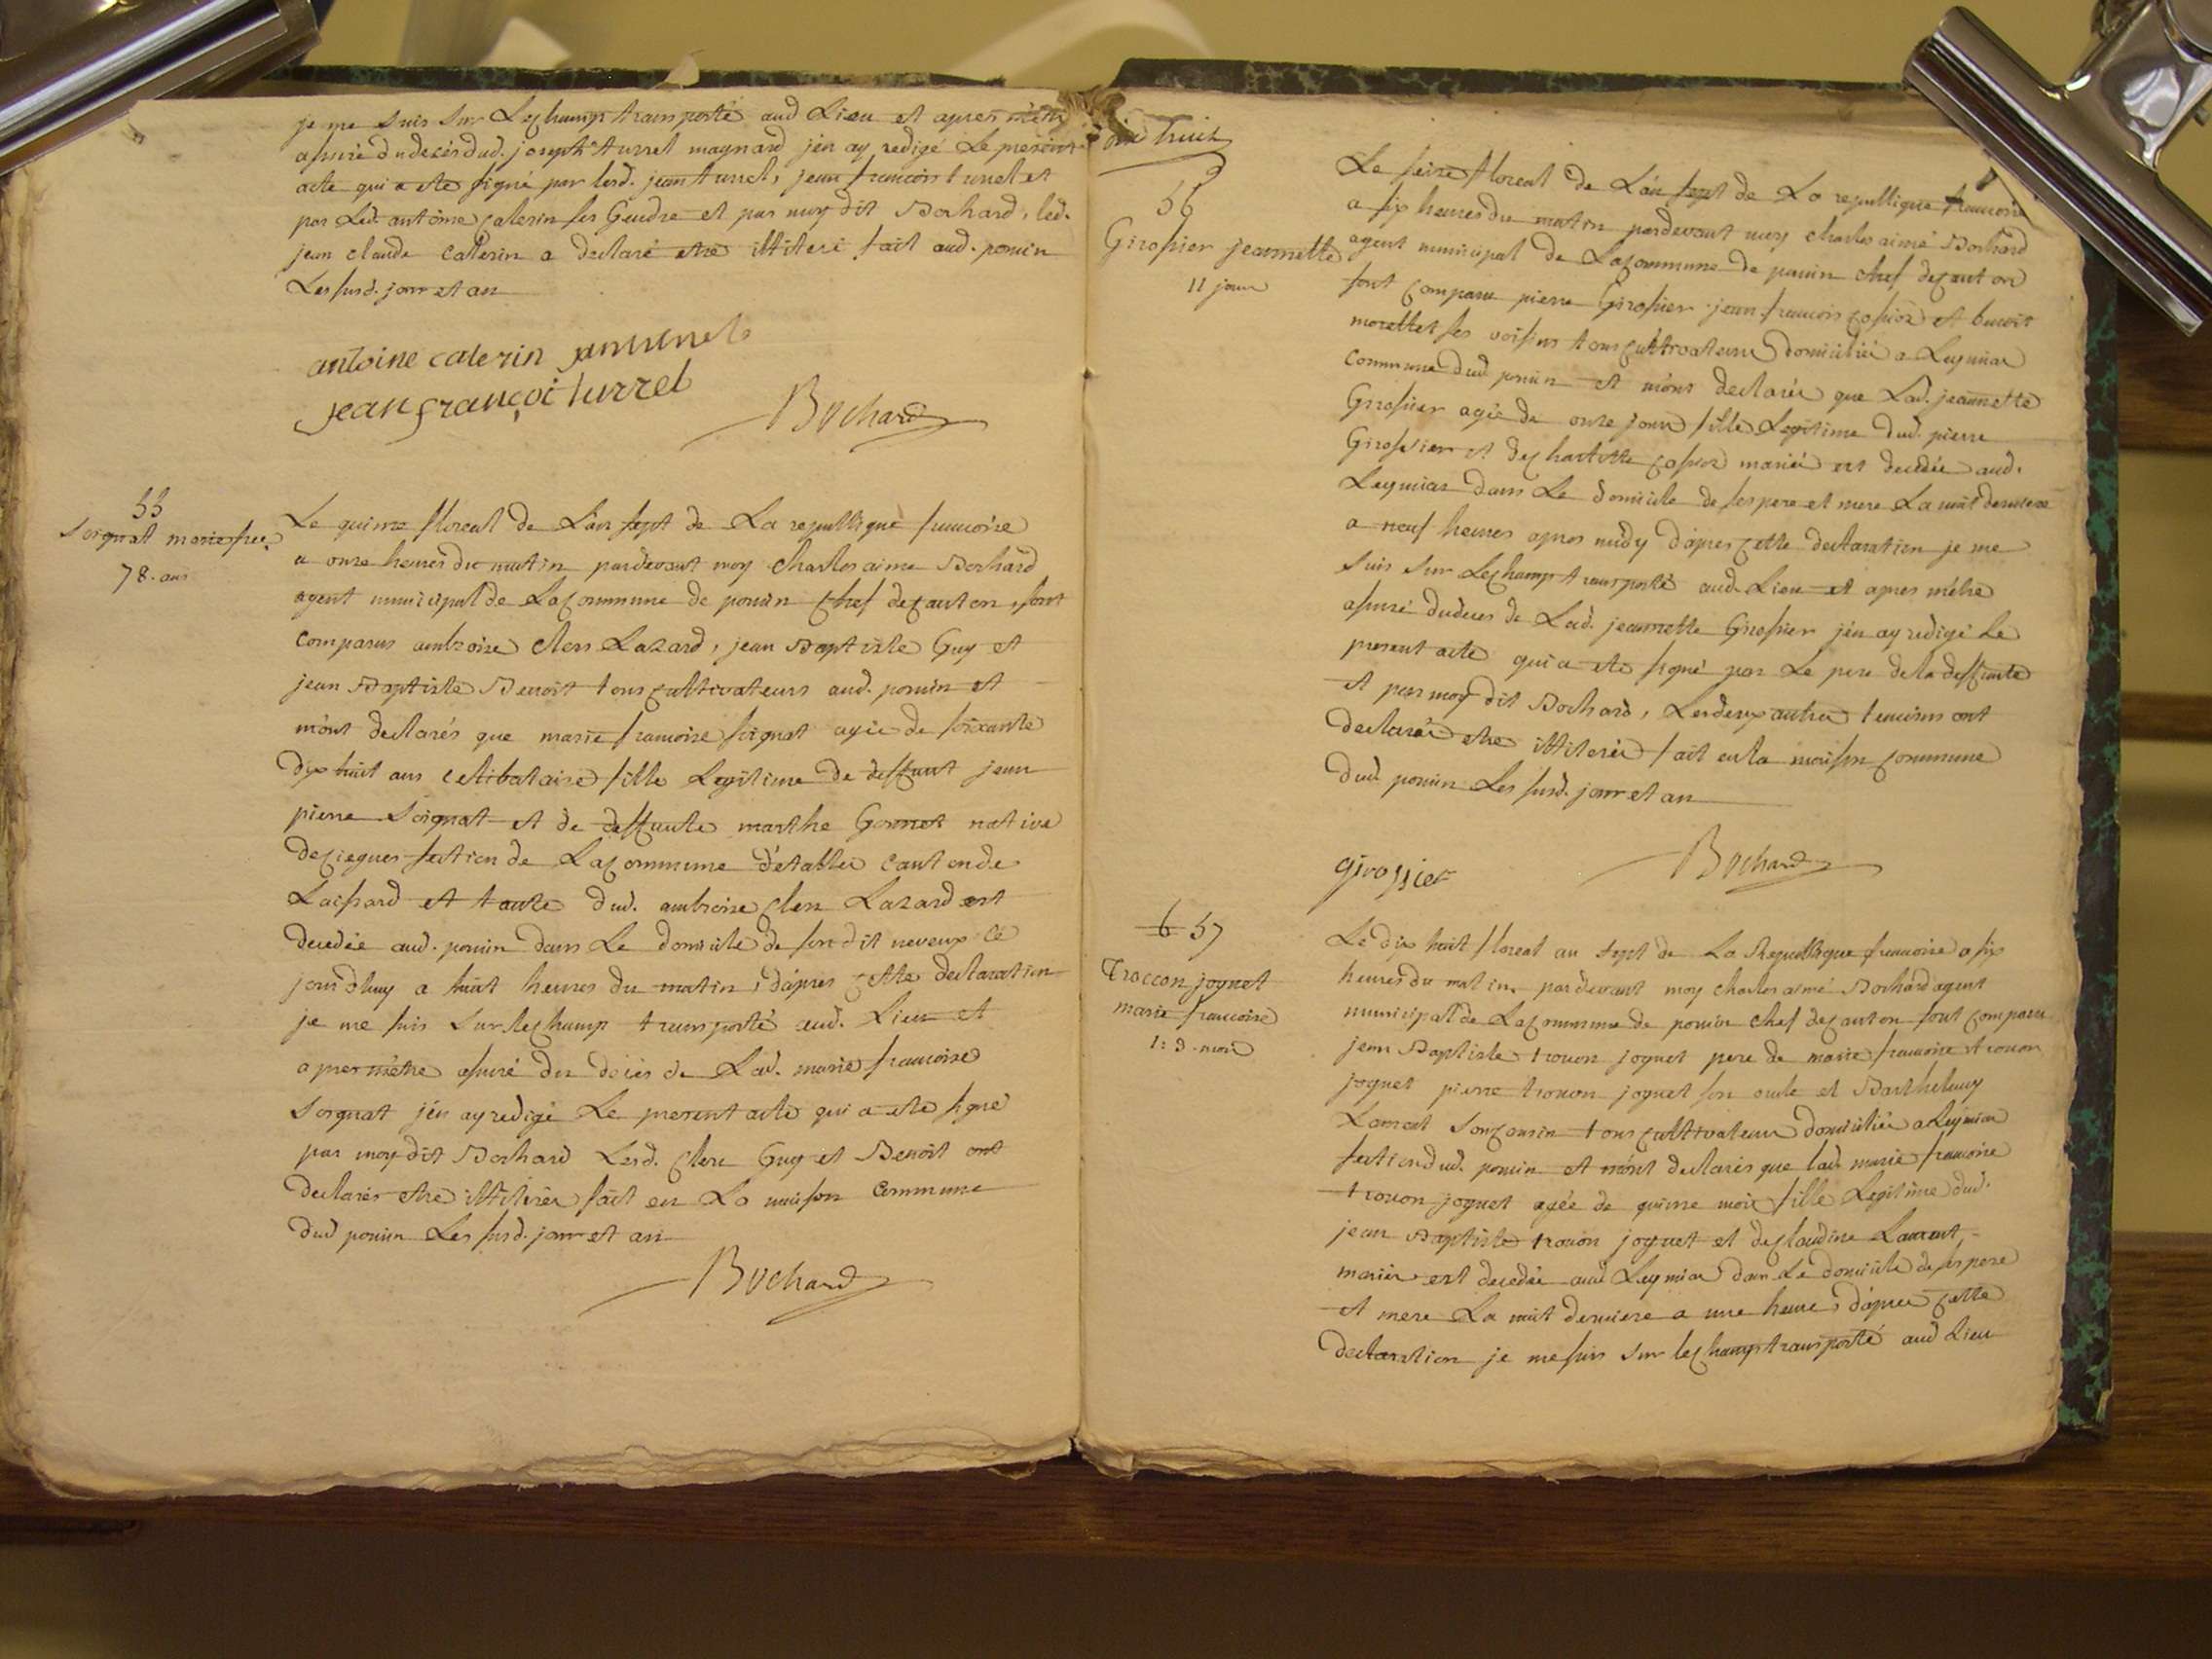 je me suis sur Lechamp transporté aud Lieu et apres metre
assuré du decès dud. joseph turrel maynard jén ay redigé Le present
acte qui a ete signé par lesd. jean turrel, jean francois turrel et
par Led. antoine caterin ses Gendre et par moy dit Bochard, led.
jean claude caterin a declaré etre illiteré fait aud. poncin
Les susd. jour et an
antoine caterin
jean françoi turrel
Bochard
55
Soignat marie fse.
78. ans
Le quinze floreal de Lán sept de La republique francoise
a onze heures du matin pardevant moy Charles aimé Bochard
agent municipal de La Commune de poncin chef de canton, sont
comparus ambroise Clerc Lazard, jean Baptiste Guy et
jean Baptiste Benoit tous cultivateurs aud. poncin et
mónt declarés que marie francoise soignat agée de soixante
dix huit ans celibataire fille Legitime de deffunt jean
pierre Soignat et de deffunte marthe Gonnet native
de section de La Commune détables canton de
Laissard et tante dud. ambroise Clerc Lazard est
decedée aud. poncin dans Le domicile de son dit neveux ce
jourdhuy a huit heures du matin, dápres cette declaration
je me suis sur lechamp transporté aud. Lieu et
apres mètre assuré du décès de Lad. marie francoise
Soignat jén ay redigé Le present acte qui a ete signé
par moy dit Bochard Lesd. Clerc Guy et Benoit ont
declarés etre illiterés fait en La maison Commune
dud poncin Les susd. jour et an
Bochard
dix huit
56
Girossier jeannette
11 jours
Le seize floreal de Lán sept de La republique francoise
a six heures du matin pardevant moy charles aimé Bochard
agent municipal de La Commune de poncin chef de canton
sont comparu pierre Girossier jean francois et benoit
morellet ses voisins tous cultivateurs domiciliés a Leymiat
Commune dud poncin et mónt declarés que Lad. jeannette
Girossier agée de onze jours fille Legitime dud. pierre
Girossier et de charlotte mariés est decedée aud.
Leymiat dans Le domicile de ses pere et mere La nuit derniere
a neuf heures apres midy dápres cette declaration je me
suis sur Lechamp transporté aud. Lieu et apres métre
assuré du deces de Lad. jeannette Girossier jén ay redigé Le
present acte qui a ete signé par Le pere de la deffunte
et par moy dit Bochard, Les deux autres temoins ont
declarés etre illiterés fait en la maison commune
dud poncin Les susd. jour et an
girossier
Bochard
6 57
Troccon joguet
marie francoise
1: 3. mois
Le dix huit floreal an sept de La Republique francoise a six
heures du matin. par devant moy charles aimé Bochard agent
municipal de La Commune de poncin chef de canton sont comparu
jean Baptiste trocon joguet pere de marie francoise trocon
joguet pierre trocon joguet son oncle et Barthelemy
Laurent son cousin tous cultivateurs domiciliés a Leymiat
section dud. poncin et mónt declarés que lad. marie francoise
trocon joguet agée de quinze mois fille Legitime dud.
jean Baptiste trocon joguet et de claudine Laurent,
mariés est decedée aud Leymiat dans Le domicile de ses pere
et mere La nuit derniere a une heure dápres cette
declaration je me suis sur lechamp transporté aud Lieu